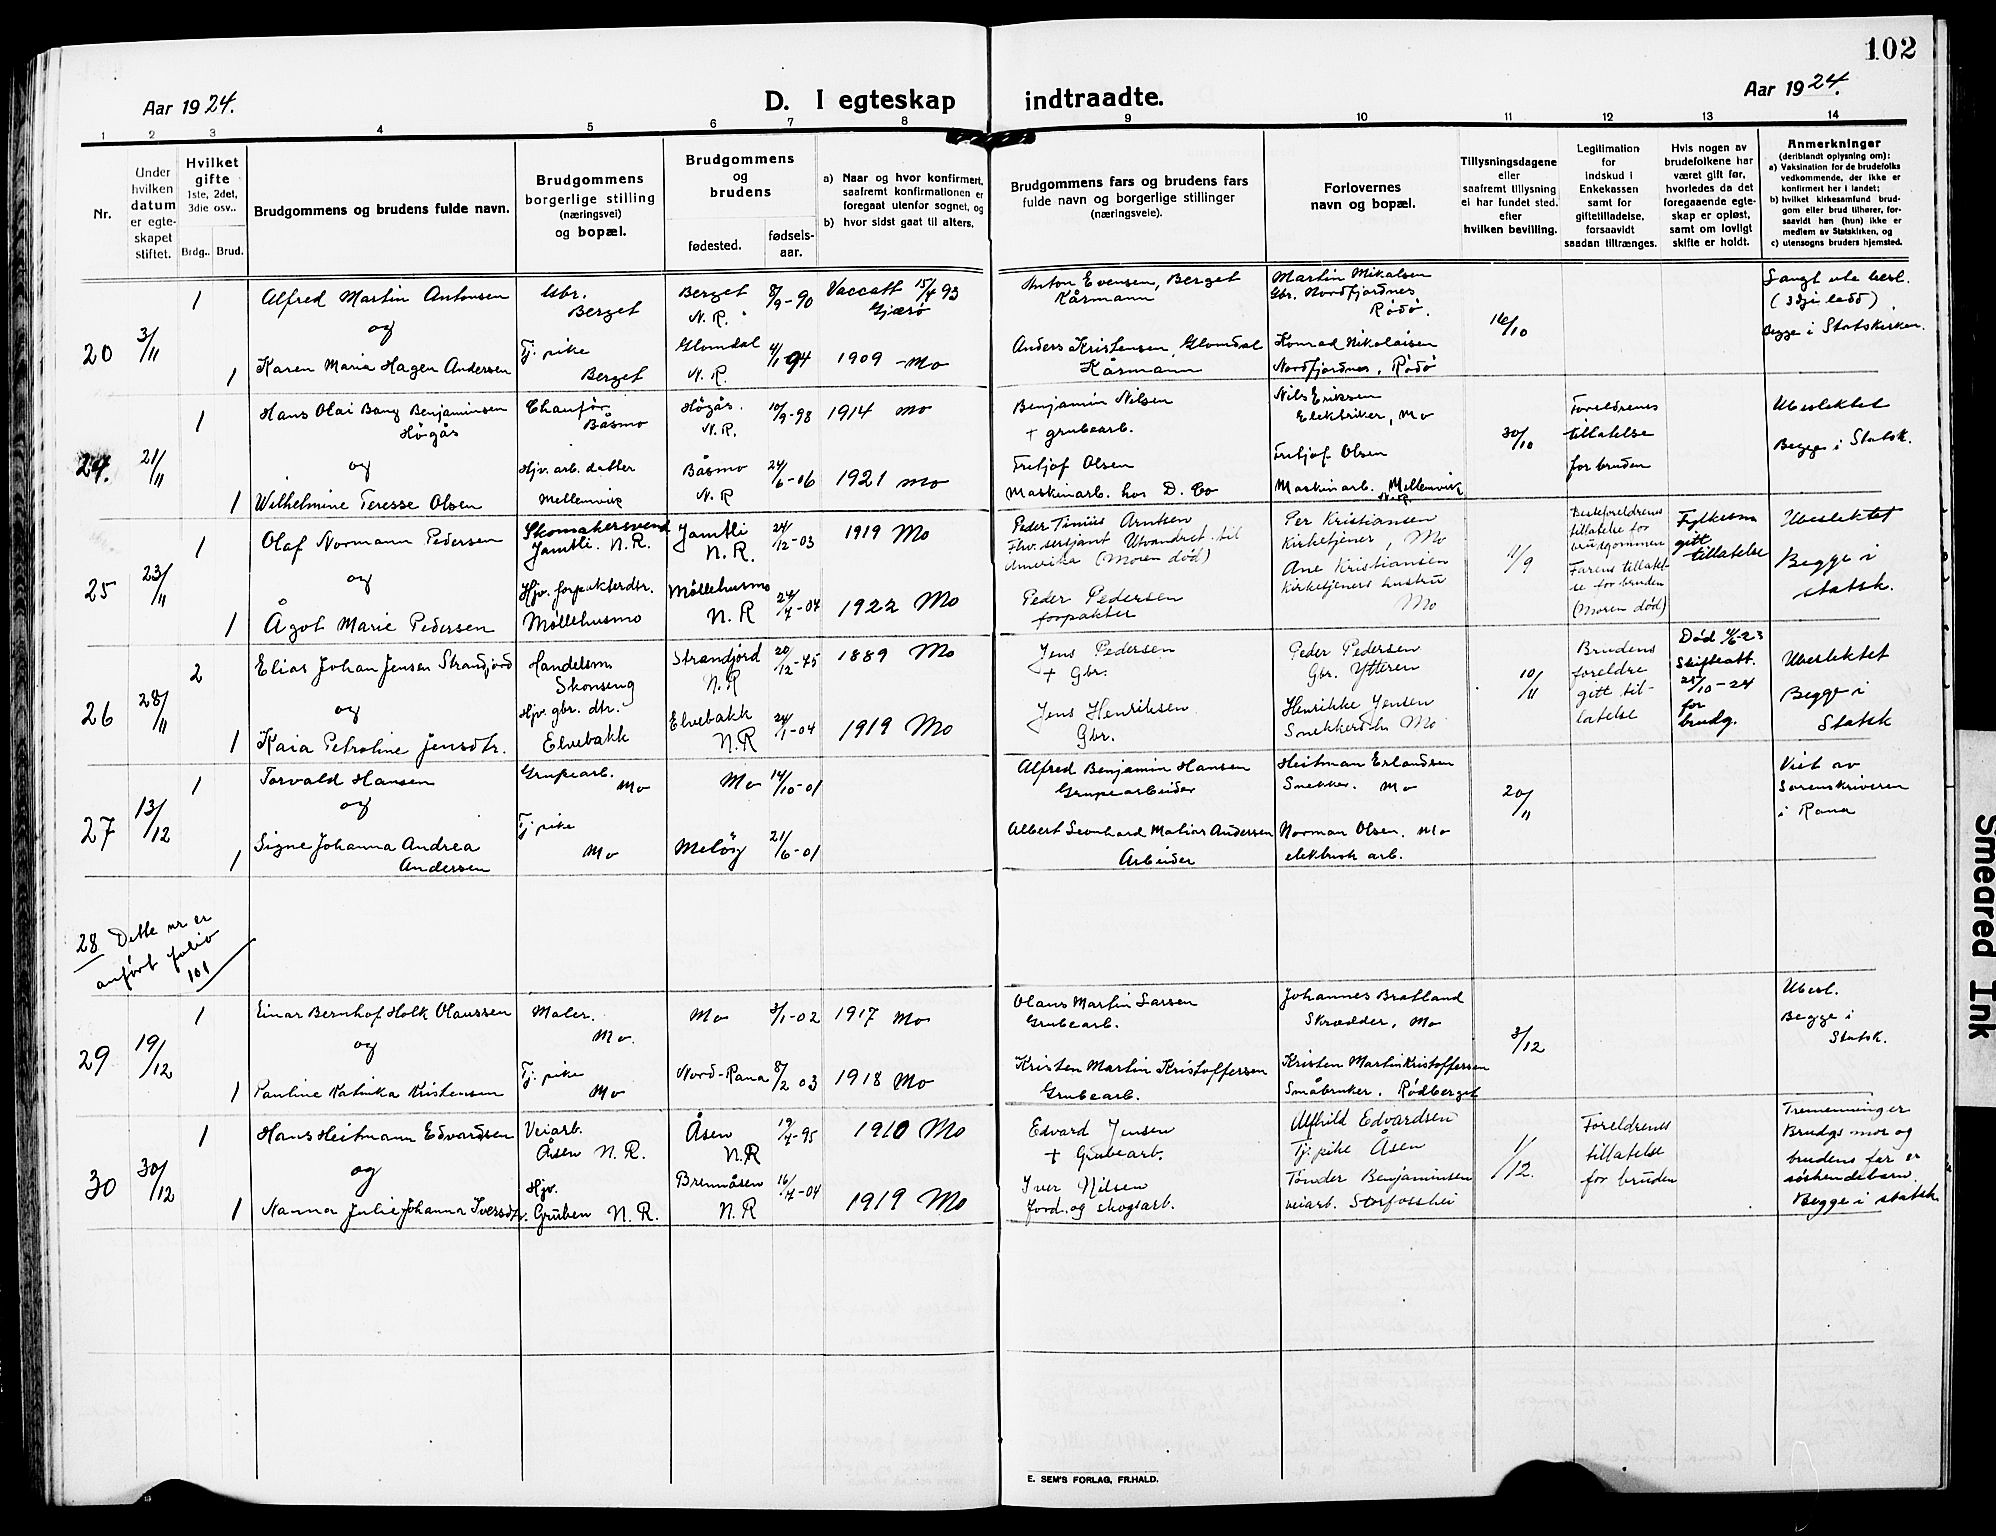 102
Aar 1924.
D. I egteskap indtraadte.
Aar 1924.
1 2 3 4 5 6 7 8 9 10 11 12 13 14
Nr.
Under hvilken datum er egteskapet stiftet.
Hvilket gifte
1ste, 2det, 3die osv..
Brdg.. Brud.
Brudgommens og brudens fulde navn.
Brudgommens borgerlige stilling (næringsvei) og bopæl.
Brudgommens og brudens
fødested.
fødsels-aar.
a) Naar og hvor konfirmert, saafremt konfirmationen er foregaat utenfor sognet, og
b) hvor sidst gaat til alters.
Brudgommens fars og brudens fars fulde navn og borgerlige stillinger (næringsveie).
Forlovernes navn og bopæl.
Tillysningsdagene eller saafremt tillysning ei har fundet sted. efter hvilken bevilling.
Legitimation for indskud i Enkekassen samt for giftetilladelse, forsaavidt saadan tiltrænges.
Hvis nogen av brudefolkene har været gift før, hvorledes da det foregaaende egteskap er opløst, samt om lovligt skifte er holdt.
Anmerkninger
(deriblandt oplysning om):
a) Vaksination for de brudefolks vedkommende, der ikke er konfirmert her i landet;
b) hvilket kirkesamfund brudgom eller brud tilhører, forsaavidt han (hun) ikke er medlem av Statskirken, og
c) utensogns bruders hjemsted.
20
3/11
1
Alfred Martin Antonsen
Gbr. Berget
Berget N.R.
8/9-90
Vaccatt 15/4 93 Gjærø
Anton Evensen, Berget Kårmann
Martin Mikalsen
Gbr. Nordfjordnes Rødø.
16/10
Langt ute besl. (3dje ledd)
Begge i Statskirken.
og
1
Karen Maria Hagen Andersen
Tj. pike Berget
Glomdal N.R.
4/1 94
1909 - Mo
Anders Kristensen, Glomdal Kårmann
Konrad Nikolaisen
Nordfjordnes, Rødø
24.
21/11
1
Hans Olai Bang Benjaminsen Høgås
Chaufør Båsmo
Høgås. N.R.
10/9-98
1914 Mo
Benjamin Nilsen
+ grubearb.
Nils Eriksen
Elektriker, Mo
30/10
Foreldrenes tillatelse for bruden
Ubeslektet
Begge i Statsk.
og
1
Wilhelmine Teresse Olsen
Hjv. arb. datter Mellemvik
Båsmo N.R
24/6-06
1921 Mo
Fritjof Olsen
Maskinarb. hos D. Co
Fritjof Olsen
Maskinarb. Mellemvik N.R.
25
23/11
1
Olaf Normann Pedersen
Skomakersvend Jamtli. N.R.
Jamtli N.R.
24/12-03
1919 Mo
Peder Tinius Arntsen
Fhv. sersjant Utvandret til Amerika (Moren død)
Per Kristiansen
Kirketjener, Mo
1/9
Besteforeldrens tillatelse for brudgommen
Farens tillatelse for bruden (Moren død)
Fylkesm. gitt tillatelse
Ubeslektet
Begge i statsk.
og
1
Ågot Marie Pedersen
Hjv. forpakterdtr. Møllehusmo
Møllehusmo N.R
24/7-04
1922 Mo
Peder Pedersen
forpakter
Ane Kristiansen
Kirketjeners hustru Mo
26
28/11
2
Elias Johan Jensen Strandjord
Handelsm. Skonseng
Strandjord N.R
20/12-75
1889 Mo
Jens Pedersen
+ Gbr.
Peder Pedersen
Gbr. Ytteren
10/11
Brudens foreldre gitt tillatelse
Død 4/6-23
Skifteatt. 25/10-24 for brudg.
Ubeslektet
Begge i Statsk
og
1
Kaia Petroline Jensdtr.
Hjv. gbr. dtr. Elvebakk
Elvebakk N.R
24/1-04
1919 Mo
Jens Henriksen
Gbr.
Henrikke Jensen
Snekkerdtr. Mo
27
13/12
1
Torvald Hansen
Grupearb. Mo
Mo
14/10-01
Alfred Benjamin Hansen
Grupearbeider
Heitman Erlandsen
Snekker. Mo
20/11
Viet av Sorenskriveren i Rana
og
1
Signe Johanna Andrea Andersen
Tj. pike Mo
Meløy
21/6-01
Albert Leonhard Matias Andersen
Arbeider
Norman Olsen. Mo
elektrisk arb.
28 Dette nr er anført folio 101
29
19/12
1
Einar Bernhof Holk Olaussen
Maler. Mo.
Mo
3/1-02
1917 Mo
Olaus Martin Larsen
Grubearb.
Johannes Bratland
Skrædder, Mo
3/12
Ubesl.
Begge i Statsk.
og
1
Pauline Katinka Kristensen
Tj. pike Mo
Nord-Rana
8/2 03
1918 Mo
Kristen Martin Kristoffersen
Grubearb.
Kristen Martin Kristoffersen
Småbruker. Rødberget
30
30/12
1
Hans Heitmann Edvardsen
Veiarb. Åsen N.R.
Åsen N.R
19/7-95
1910 Mo
Edvard Jensen
+ Grubearb.
Alfhild Edvardsen
Tj. pike Åsen
1/12.
Foreldrenes tillatelse for bruden
Tremenninger
Brudgs mor og brudens far er søskendebarn.
Begge i statsk
og
1
Nanna Julie Johanna Iversdtr.
Hjv. Gruben N.R.
Brennåsen N.R
16/7-04
1919 Mo
Iver Nilsen
jord. og skogsarb.
Tønder Benjaminsen
veiarb. Storfosshei
E. SEM'S FORLAG, FR.HALD.
Smeared Ink